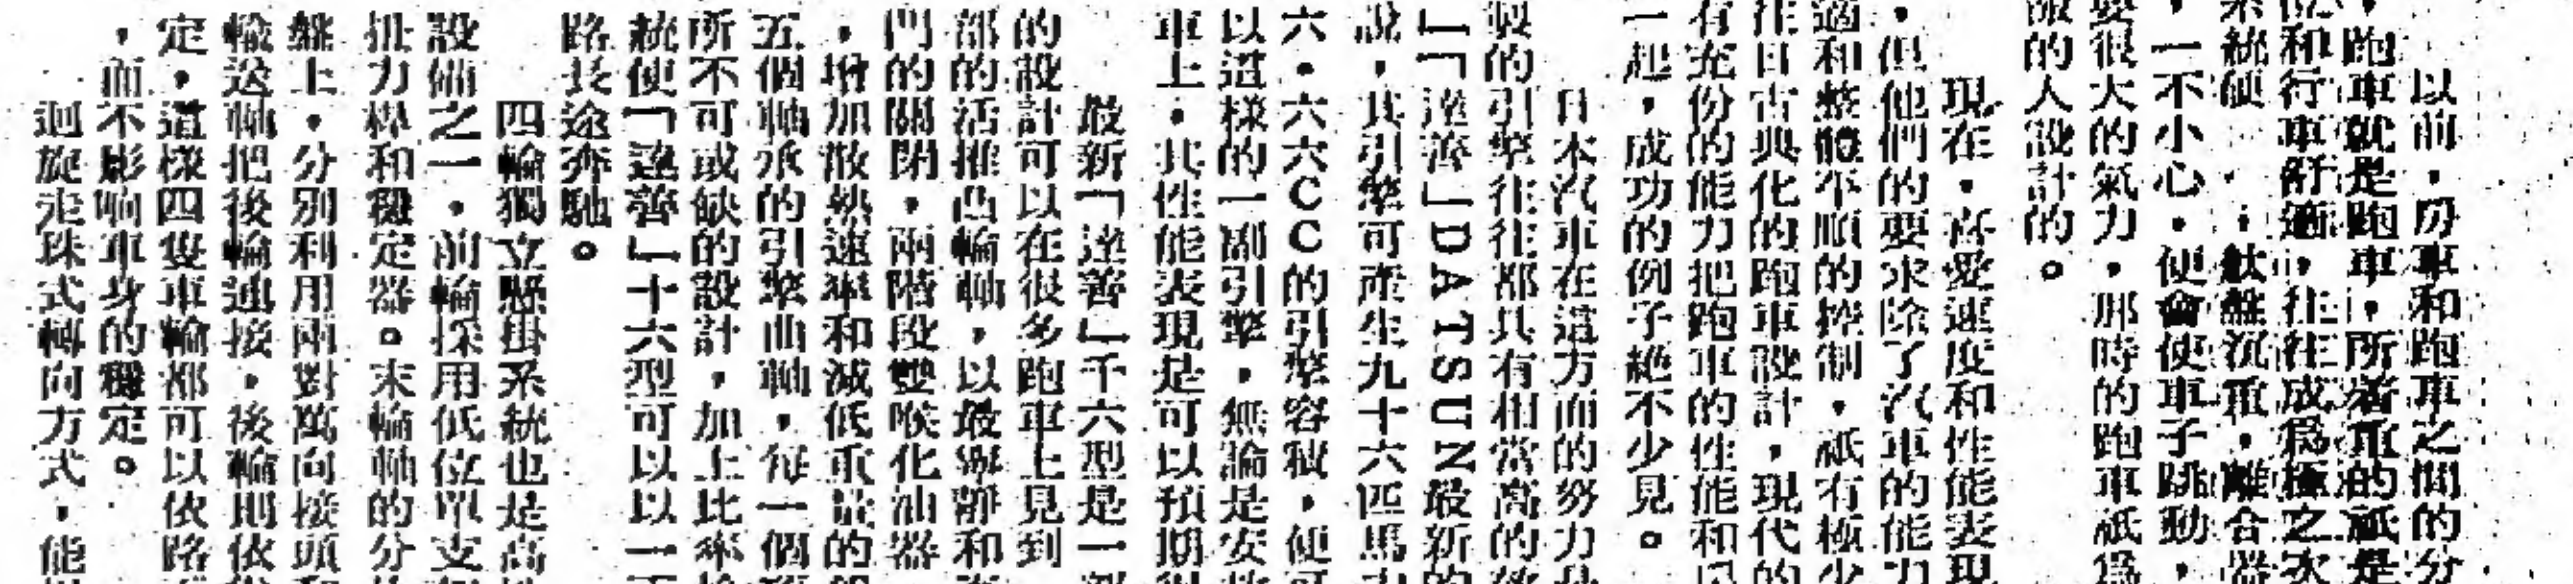 以前，房車和跑車之間的分
，跑車就是跑車，所著重的祇是
和行車舒適，往往成爲極之次
系統硬，軚盤沉重，離合器
，一不小心，便會使車子跳動，
要很大的氣力，那時的跑車祇爲
的人設計的。
現在，喜愛速度和性能表現
，但他們的要求除了汽車的能力
適和整體平順的控制，祇有極少
往日古典化的跑車設計，現代的
有充份的能力把跑車的性能和
一起，成功的例子絶不少見。
日本汽車在這方面的努力
製的引擎往往都具有相當高的
」「達善」DATSUN最新的
說，其引擎可產生九十六匹馬力
六・六六CC的引擎容積，便可
以這樣的一副引擎，無論是安
車上，其性能表現是可以預期
最新「達善」千六型是一部
的設計可以在很多跑車上見到
部的活推凸輪軸，以最寧靜和
門的關閉，兩階段雙喉化油器
，增加散熱速率和減低重量的
五個軸承的引擎曲軸，每一個
所不可或缺的設計，加上比率
統使「達善」十六型可以以一
路長途奔馳。
四輪獨立懸掛系統也是高
設備之一，前輪採用低位單支
扭力桿和穩定器。末輪軸的分
盤上，分別利用兩對萬向接頭和
輸送軸把後輪連接，後輪則依
定，這樣四隻車輪都可以依路
，而不影响車身的穩定。
迴旋走珠式轉向方式，能